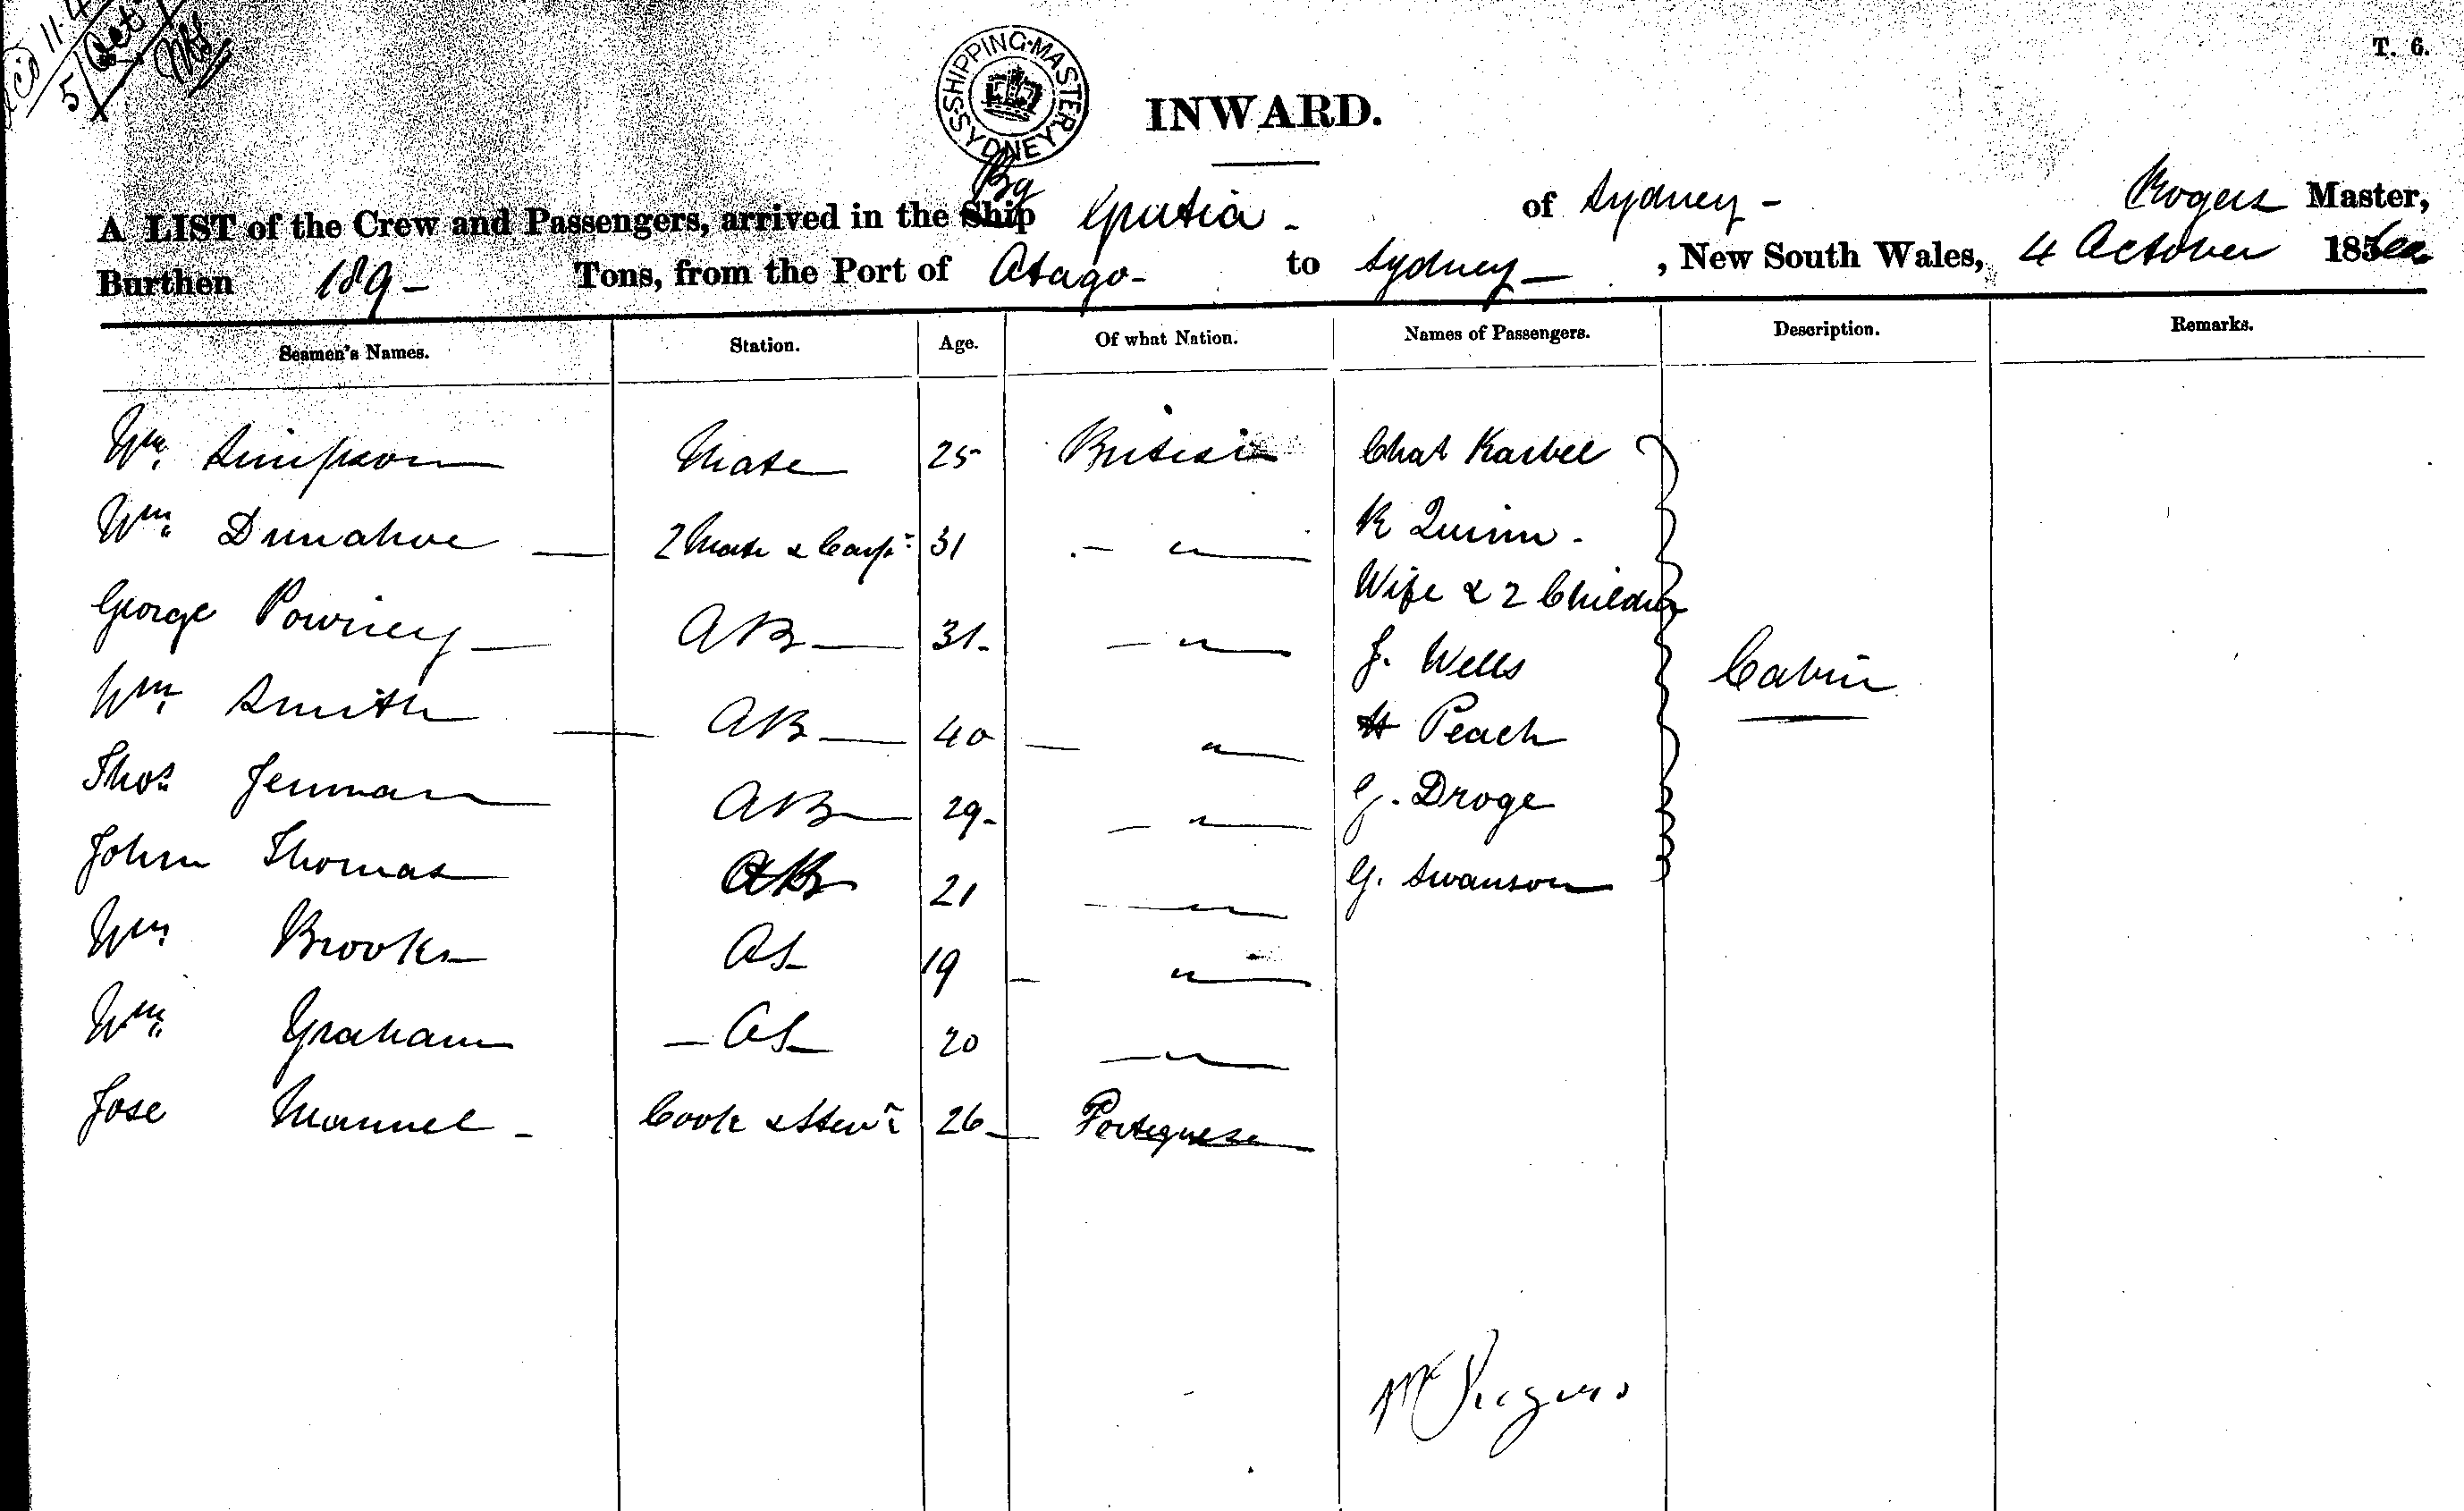 5/ Oct
T. 6.
SHIPPING-MASTER SYDNEY
INWARD.
Bg
A LIST of the Crew and Passengers, arrived in the Ship of Sydney - Rogers Master,
Burthen 189 - Tons, from the Port of Otago - to Sydney - , New South Wales, 4 October 185
Seamen's Names. Station. Age. Of what Nation. Names of Passengers. Description. Remarks.
Wm. Simpson Mate 25 British Chas
Wm. Dunahoe — 2 Mate & Carpr 31 — " — R Quinn -
Wife & 2 Children
George Powney — AB — 31 - — " — J. Wells Cabin
Wm. Smith — AB — 40 — " — H Peach
Thos. Jenman AB — 29 - — " — G. Droge
John Thomas AB 21 — " — G. Swanson
Wm. Brooks OS 19 — " —
Wm. Graham — OS 20 — " —
Jose Manuel - Cook & Stewd 26 — Portuguese
Rogers